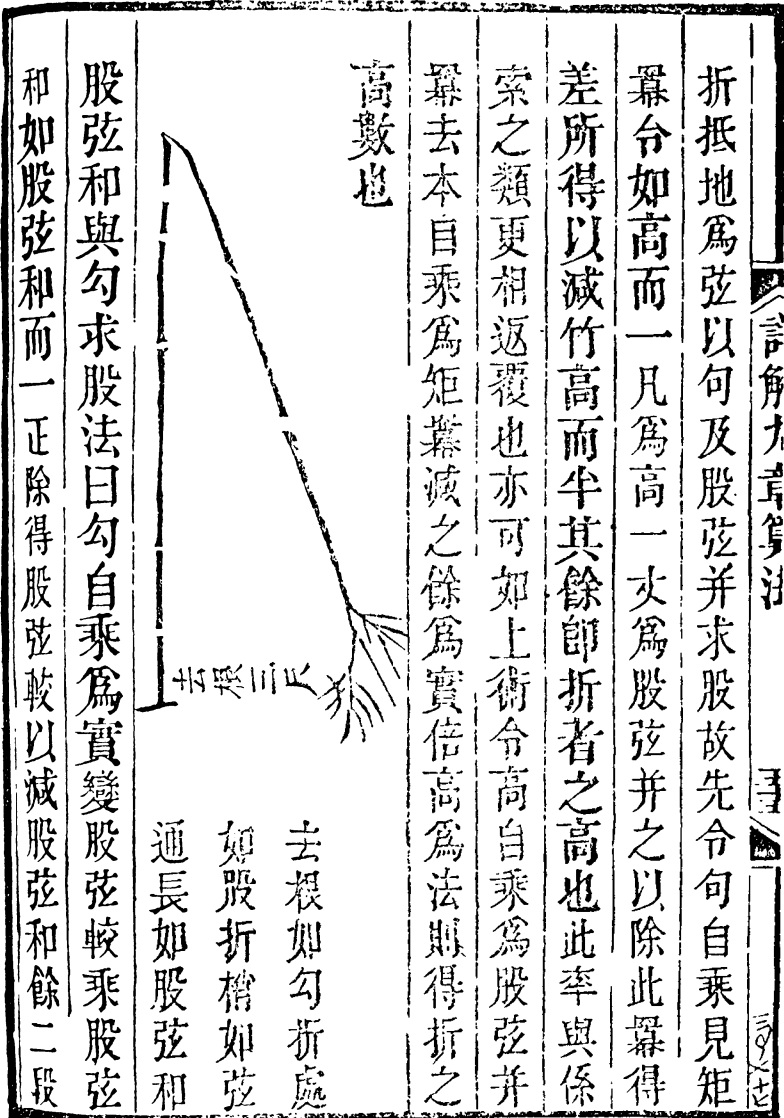 詳解九章算法
折抵地爲弦以句及股弦并求股故先令句自乘見矩
羃令如高而一凡爲高一丈爲股弦并之以除此羃得
差所得以減竹高而半其餘卽折者之高也此率與係
索之類更相返覆也亦可如上術令高自乘爲股弦并
羃去本自乘爲矩羃減之餘爲實倍高爲法則得折之
高數也
去根三尺
去根如勾折處
如股折梢如弦
通長如股弦和
股弦和與勾求股法曰勾自乘爲實變股弦較乘股弦
和如股弦和而一正除得股弦較以減股弦和餘二段